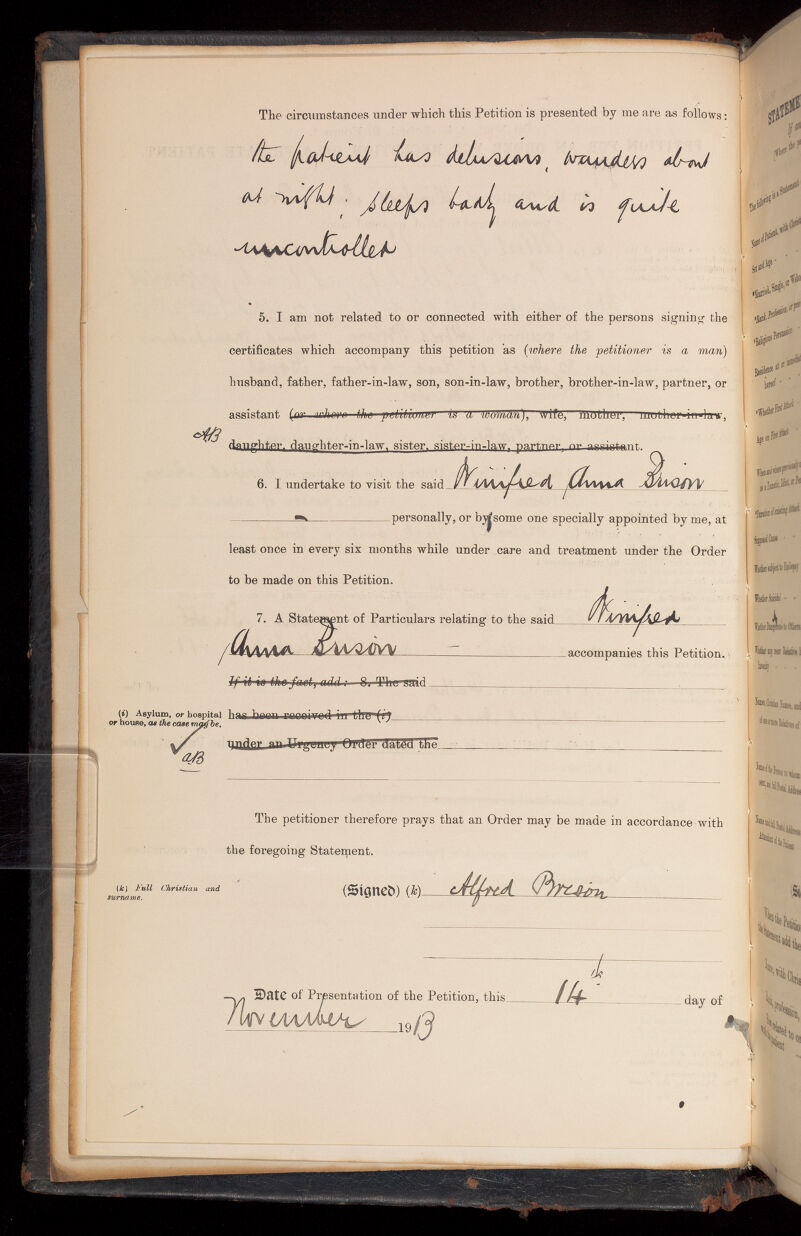 The circumstances under which this Petition is presented by me are as follows:
the patient has delusions, wanders about
at night, sleeps badly and is quite
uncontrolled
5. I am not related to or connected with either of the persons signing the
certificates which accompany this petition as (where the petitioner is a man)
husband, father, father-in-law, son, son-in-law, brother, brother-in-law, partner, or
assistant (or where the petitioner is a woman), wife, mother, mother-in-law,
AB
daughter, daughter-in-law, sister, sister-in-law, partner, or assistant.
6. I undertake to visit the said Winifred Anna
personally, or by some one specially appointed by me, at
least once in every six months while under care and treatment under the Order
to be made on this Petition.
7. A Statement of Particulars relating to the said Winifred
Anna accompanies this Petition.
If it is the fact, add:— 8. The said
(i) Asylum, or hospital
or house, as the case may be.
has been received in the (i)
under an Urgency Order dated the
AB
The petitioner therefore prays that an Order may be made in accordance with
the foregoing Statement.
(k) Full Christian and
surname.
(Signed) (k) Alfred
Date of Presentation of the Petition, this 14th day of
November 1913